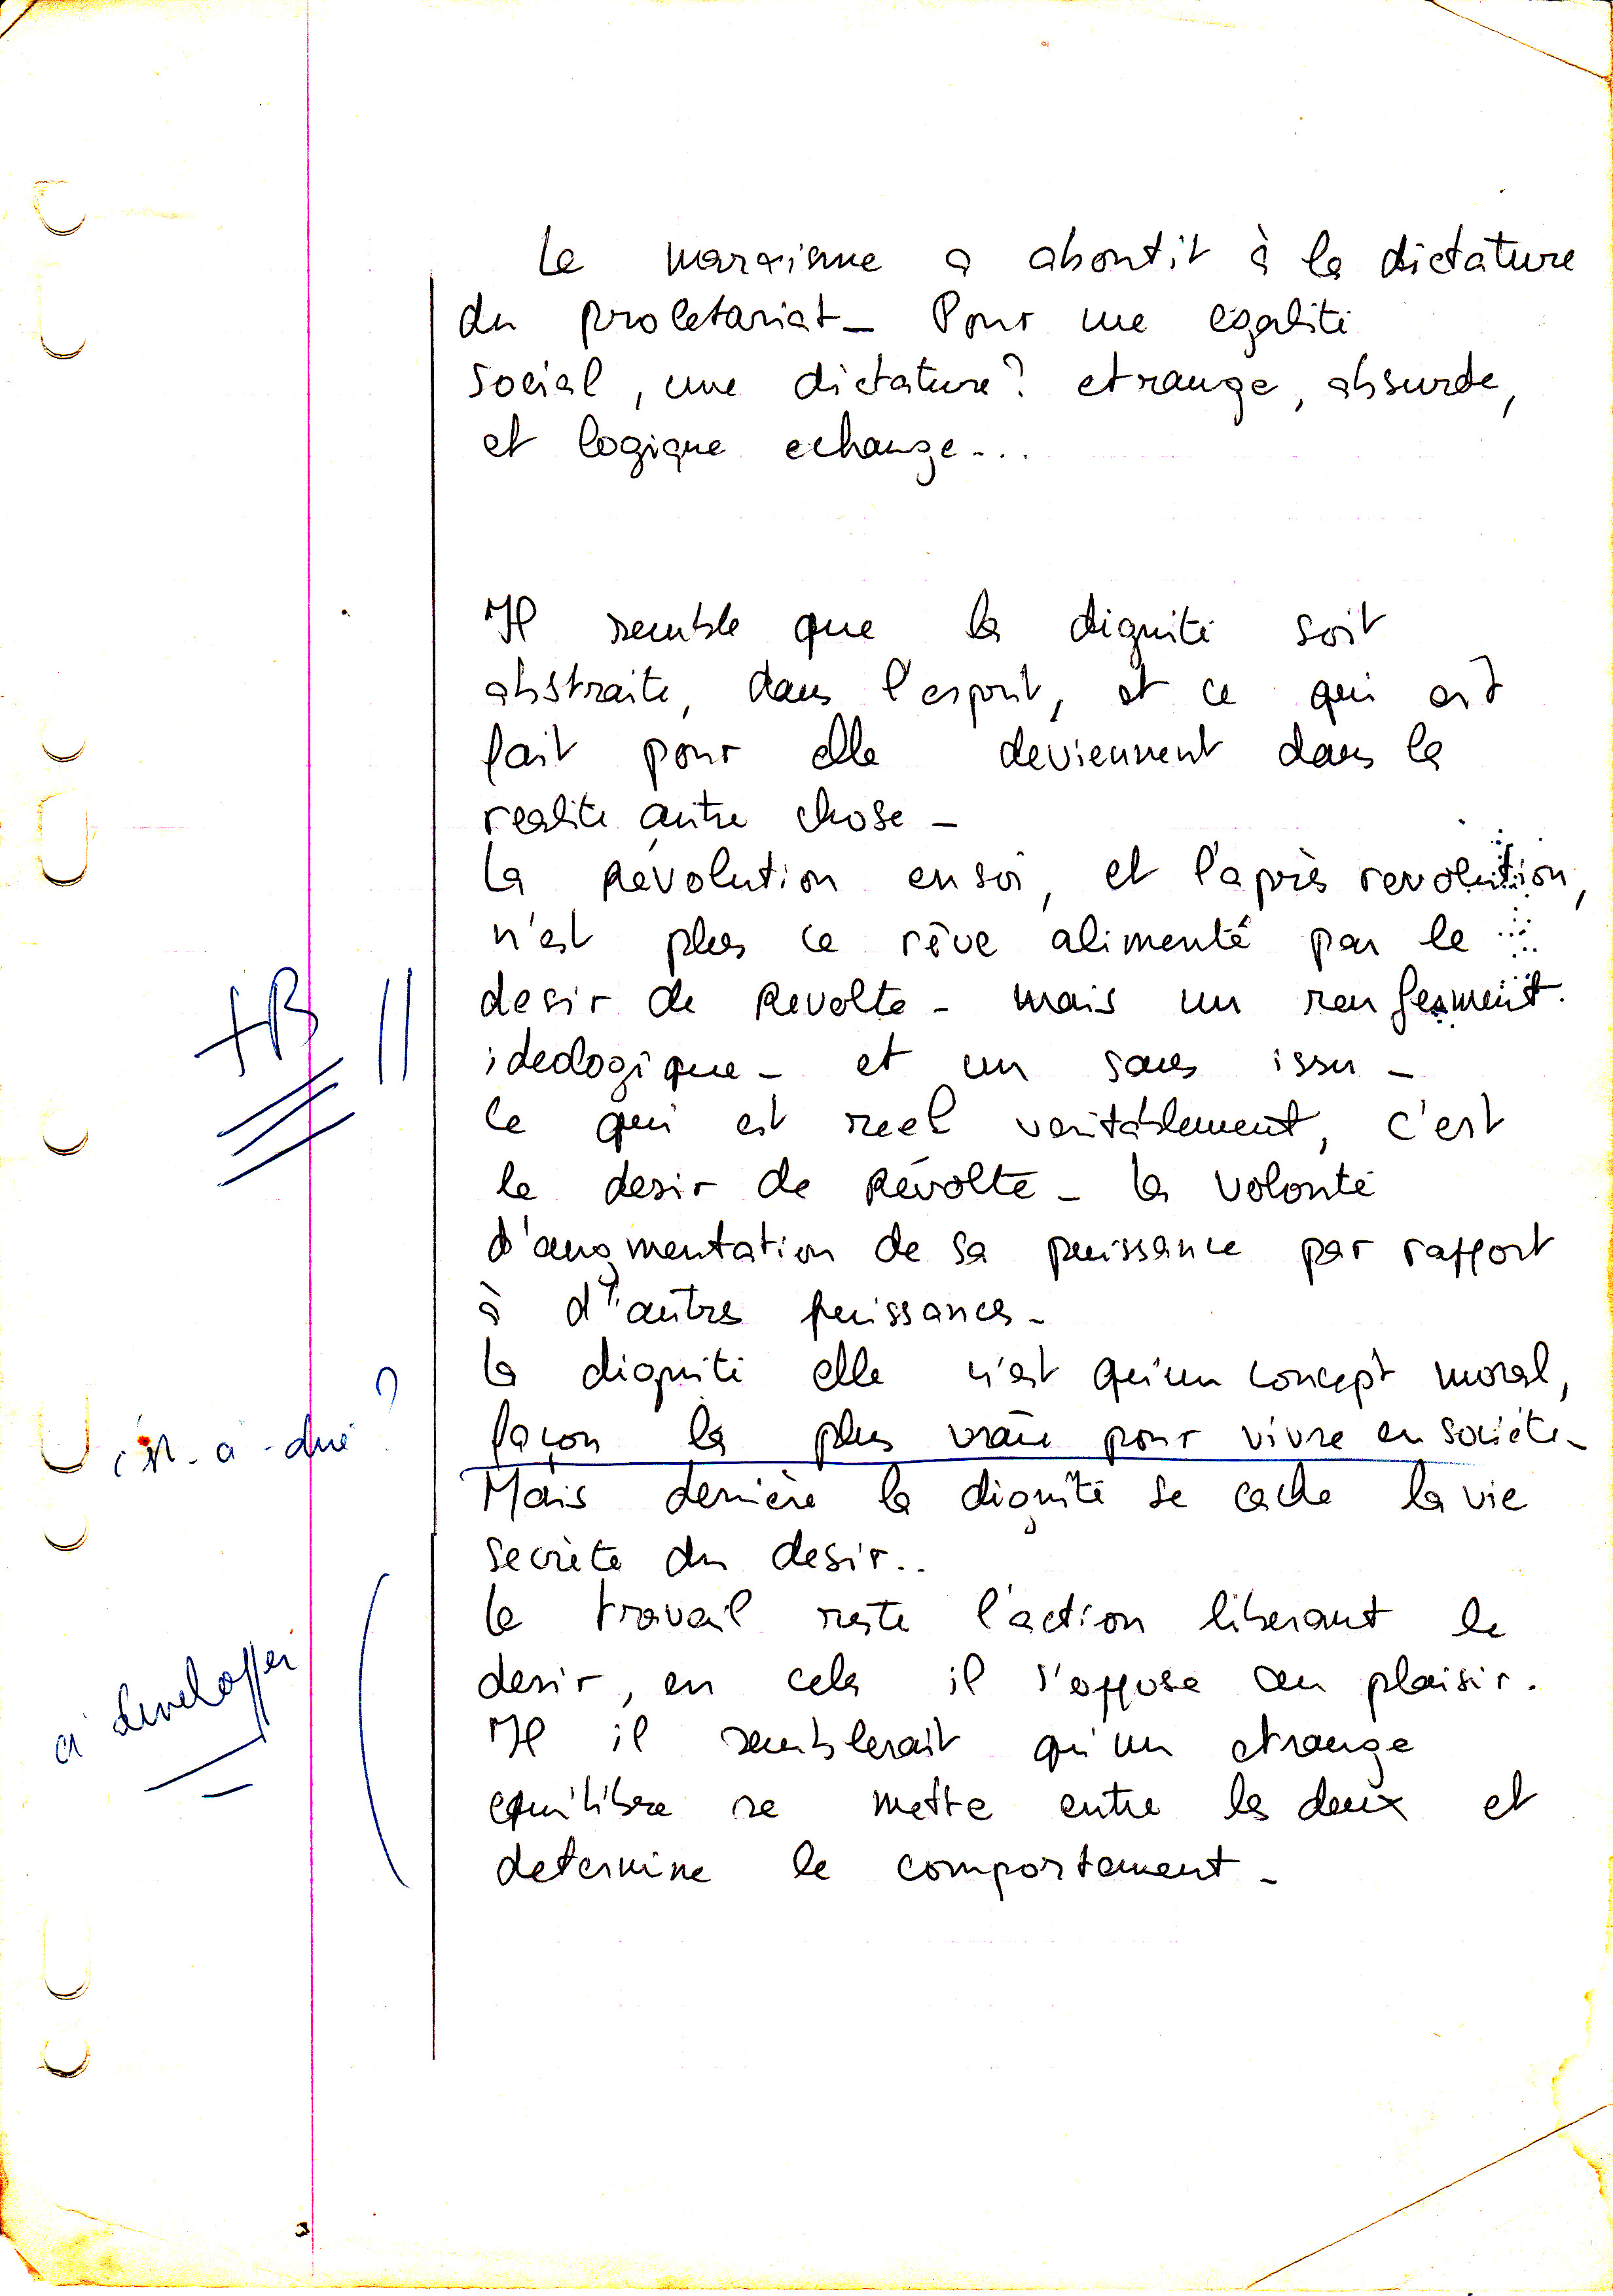 Le marxisme a aboutit à la dictature
du proletariat_ Pour une egalité
social, une dictature? etrange, absurde,
et logique echange...
Il semble que la dignité soit
abstraite, dans l'esprit, et ce qui est
fait pour elle deviennent dans la
realité autre chose_
La Révolution en soi, et l'après revolution,
n'est plus ce rêve alimenté par le
desir de Revolte_ mais un renfermement
TB
ideologique_ et un sans issu_
Ce qui est reel veritablement, c'est
le desir de Révolte_ la volonté
d'augmentation de sa puissance par rapport
à d'autres puissances_
La dignité elle n'est qu'un concept moral,
c'est-à-dire?
façon la plus vraie pour vivre en societé_
Mais derrière la dignité se cache la vie
secrète du desir..
Le travail reste l'action liberant le
desir, en cela il s'oppose au plaisir.
à developper
Il il semblerait qu'un etrange
equilibre se mette entre les deux et
determine le comportement_